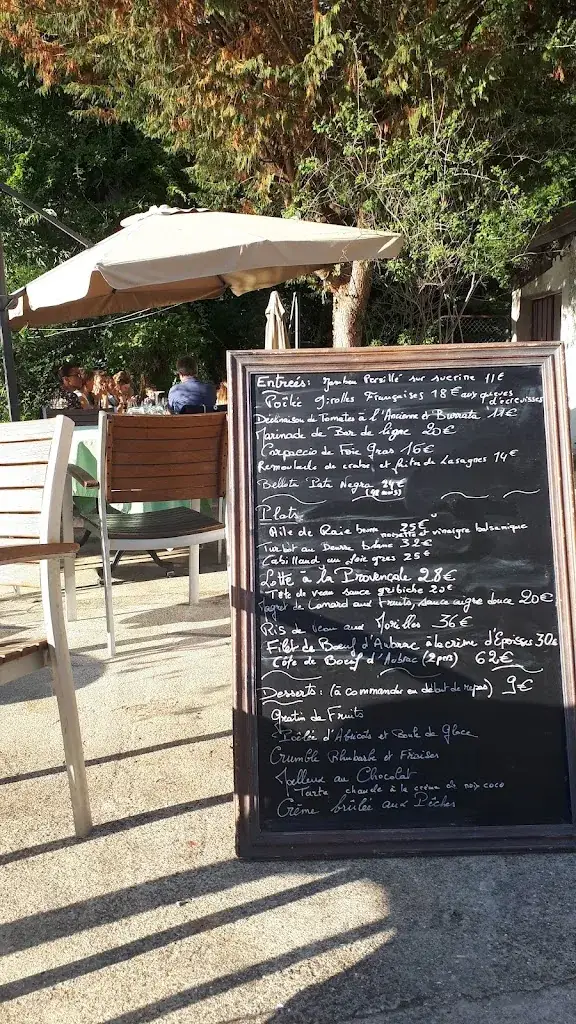 Entrées: Jambon Persillé sur sucrine 11€
Poêlée girolles Françaises 18€ aux queues d'écrevisses
Déclinaison de Tomates à l'Ancienne et Burrata 14€
Marinade de Bar de ligne 20€
Carpaccio de Foie Gras 16€
Remoulade de crabe et frite de Lasagnes 14€
Bellota Pata Negra 24€
(48 mois)
Plats
Aile de Raie beurre noisette et vinaigre balsamique 25€
Turbot au Beurre blanc 32€
Cabillaud au foie gras 25€
Lotte à la Provençale 28€
Tête de veau sauce gribiche 20€
Magret de Canard aux Fruits, sauce aigre douce 20€
Ris de veau aux Morilles 36€
Filet de Boeuf d'Aubrac à la crème d'Epoisses 30€
Côte de Boeuf d'Aubrac (2 pers) 62€
Desserts: (à commander en début de repas) 9€
Gratin de Fruits
Poêlée d'Abricots et Boule de Glace
Crumble Rhubarbe et Fraises
Moelleux au Chocolat
Tarte chaude à la crème de noix coco
Crème brûlée aux Pêches